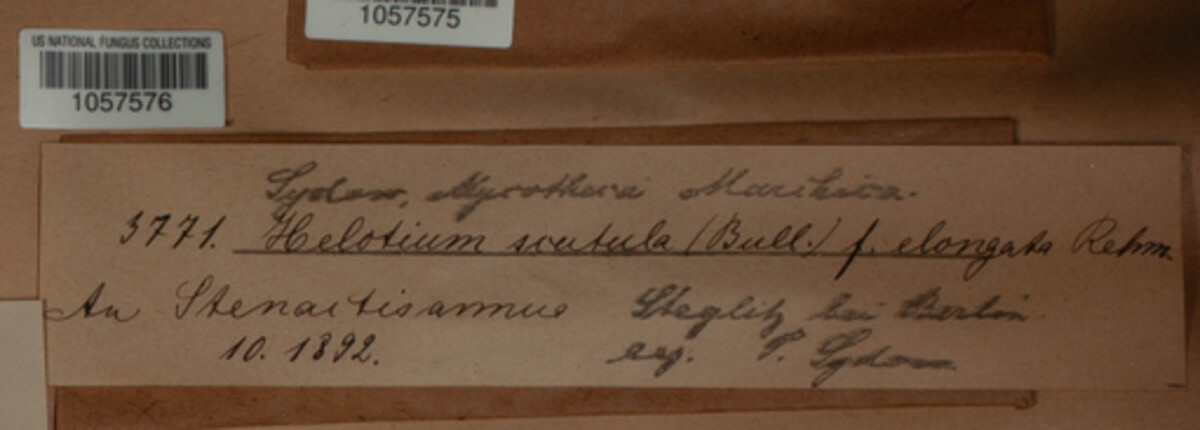 1057575
US NATIONAL FUNGUS COLLECTIONS
1057576
Sydow, Mycotheca Marchica.
3771. Helotium scutula (Bull.) f. elongata Rehm.
An Stenactis annua Steglitz bei Berlin.
10. 1892. leg. P. Sydow.